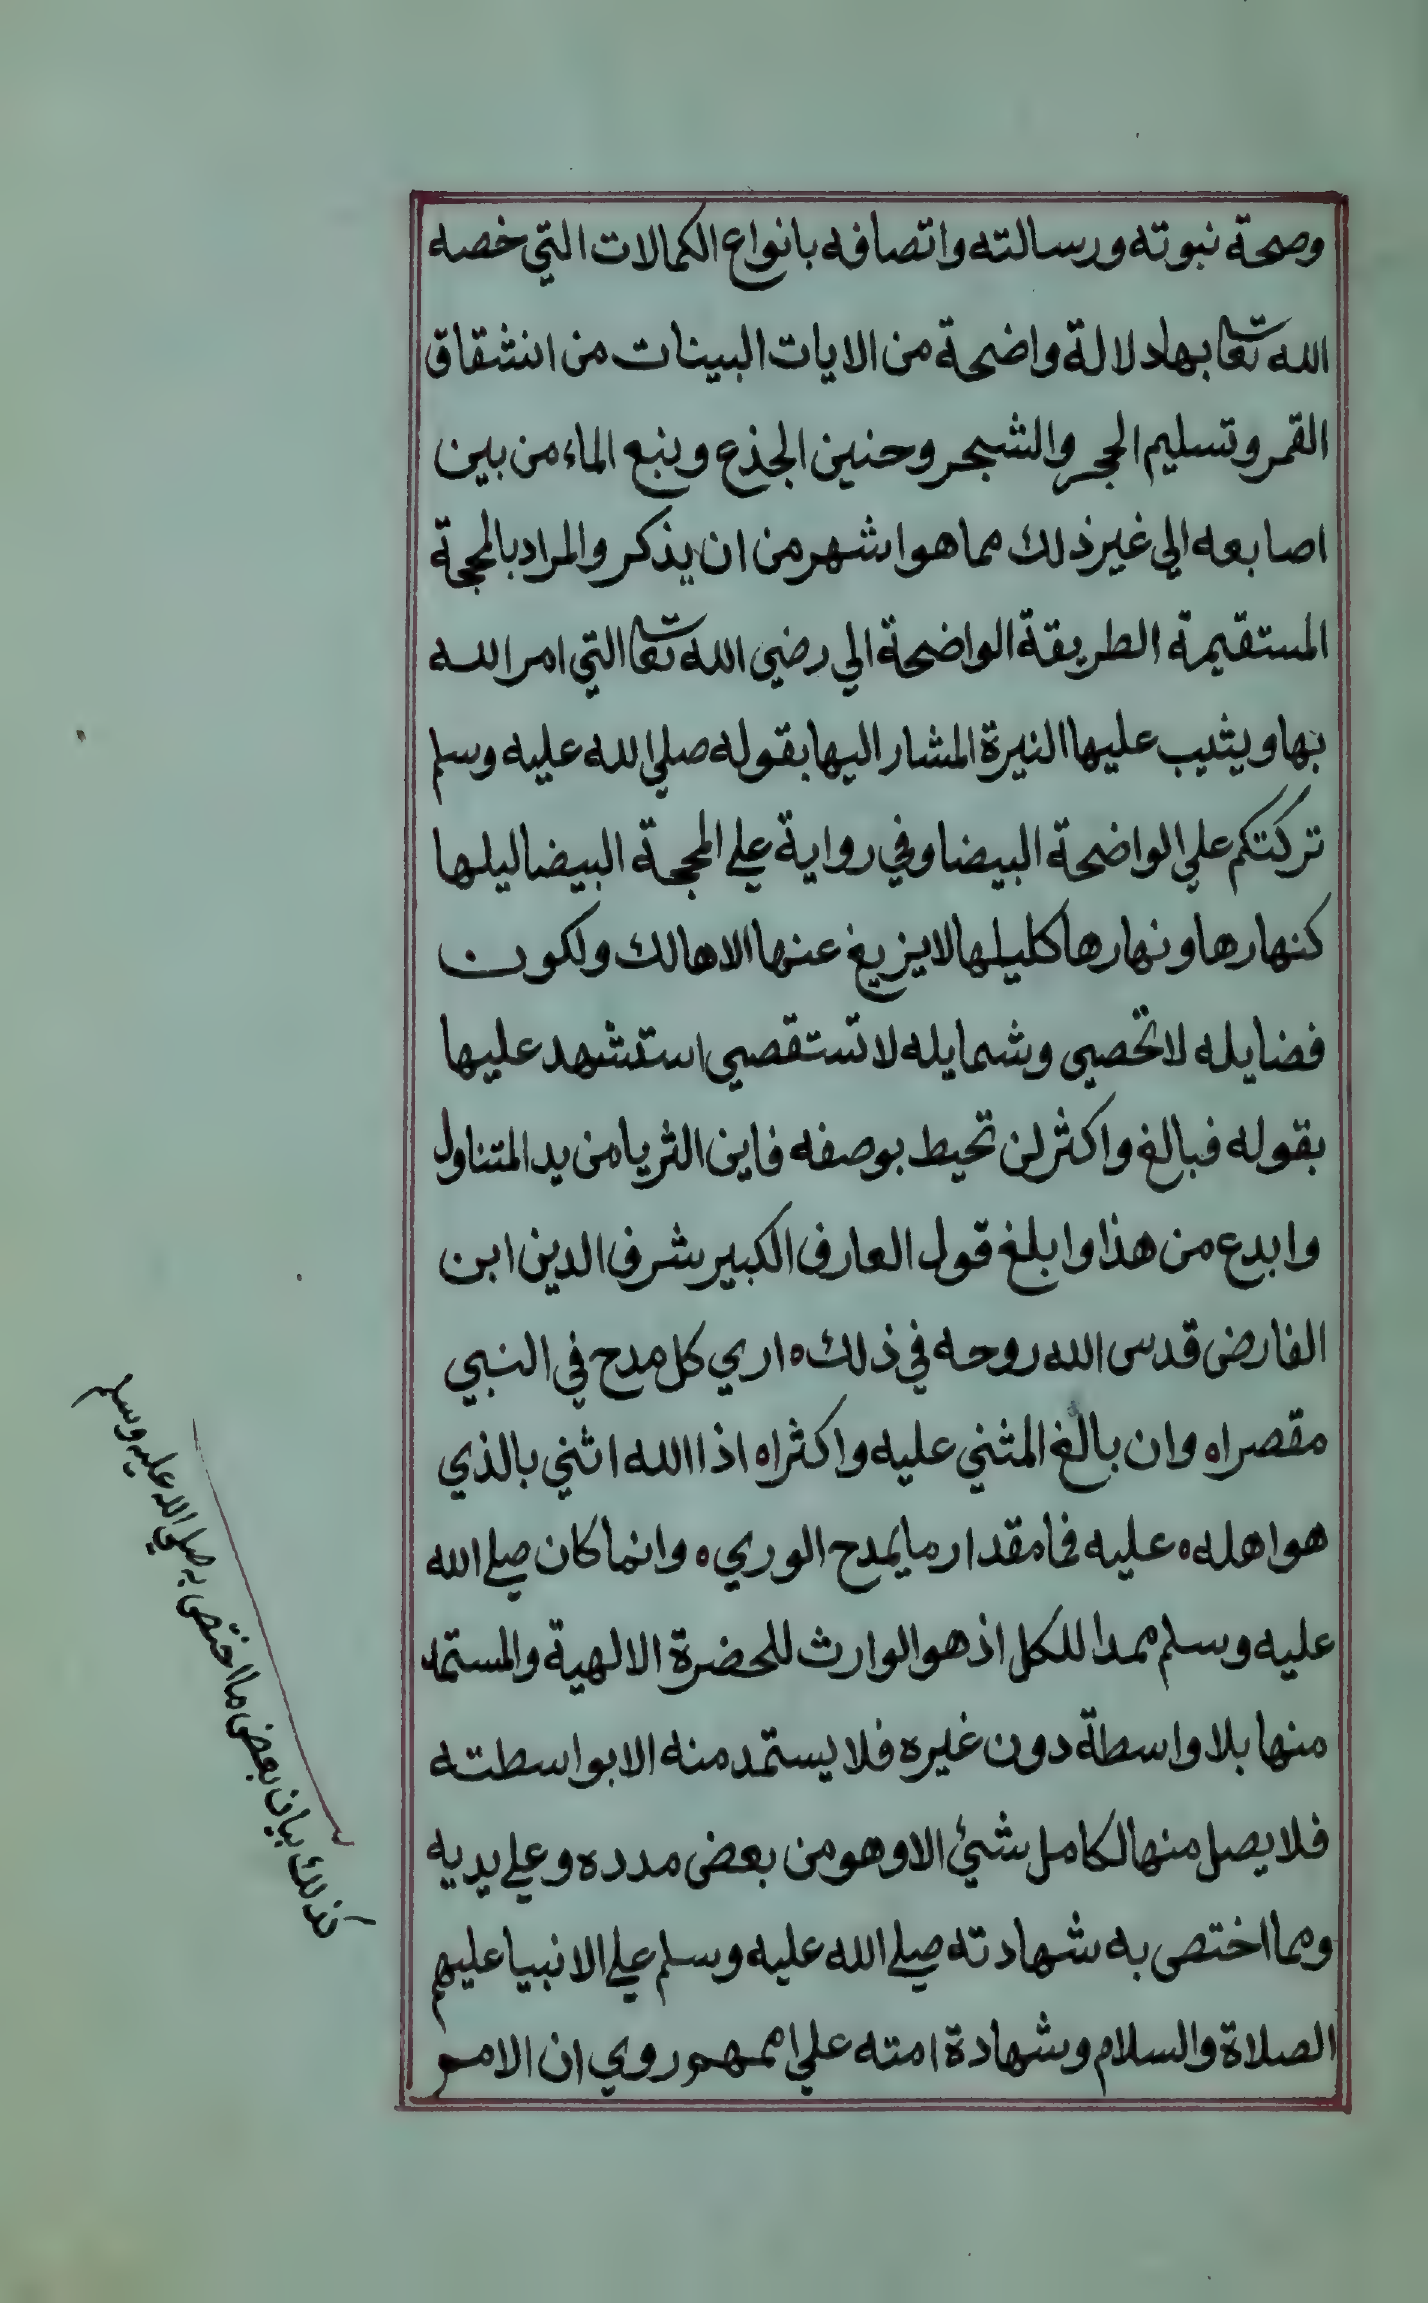 وصحة نبوته ورسالته واتصافه بانواع الكمالات التي خصه
الله تعا بها دلالة واضحة من الايات البينات من انشقاق
القمر وتسليم الحجر والشجر وحنين الجذع ونبع الماء من بين
اصابعه الي غير ذلك مما هو اشهر من ان يذكر والمراد بالمحجة
المستقيمة الطريقة الواضحة الي رضي الله تعا التي امر الله
بها ويثيب عليها النيرة المشار اليها بقوله صلي الله عليه وسلم
تركتكم علي الواضحة البيضا وفي رواية علي المحجة البيضا ليلها
كنهارها ونهارها كليلها لا يزيغ عنها الا هالك ولكون
فضايله لا تحصي وشمايله لا تستقصي استشهد عليها
بقوله فبالغ واكثر لن تحيط بوصفه فاين الثريا من يد المتناول
وابدع من هذا وابلغ قول العارف الكبير شرف الدين ابن
الفارض قدس الله روحه في ذلك ه اري كل مدح في النبي
مقصرا ه وان بالغ المثني عليه واكثرا ه اذا الله اثني بالذي
هو اهله ه عليه فما مقدار ما يمدح الوري ه وانما كان صلي الله
عليه وسلم ممدا للكل اذ هو الوارث للحضرة الالهية والمستمد
منها بلا واسطة دون غيره فلا يستمد منه الا بواسطته
فلا يصل منها لكامل شئ الا وهو من بعض مدده وعلي يديه
ومما اختص به شهادته صلي الله عليه وسلم علي الانبيا عليهم
الصلاة والسلام وشهادة امته علي اممهم روي ان الامم
كذلك بيان بعض ما اختص به صلي الله عليه وسلم